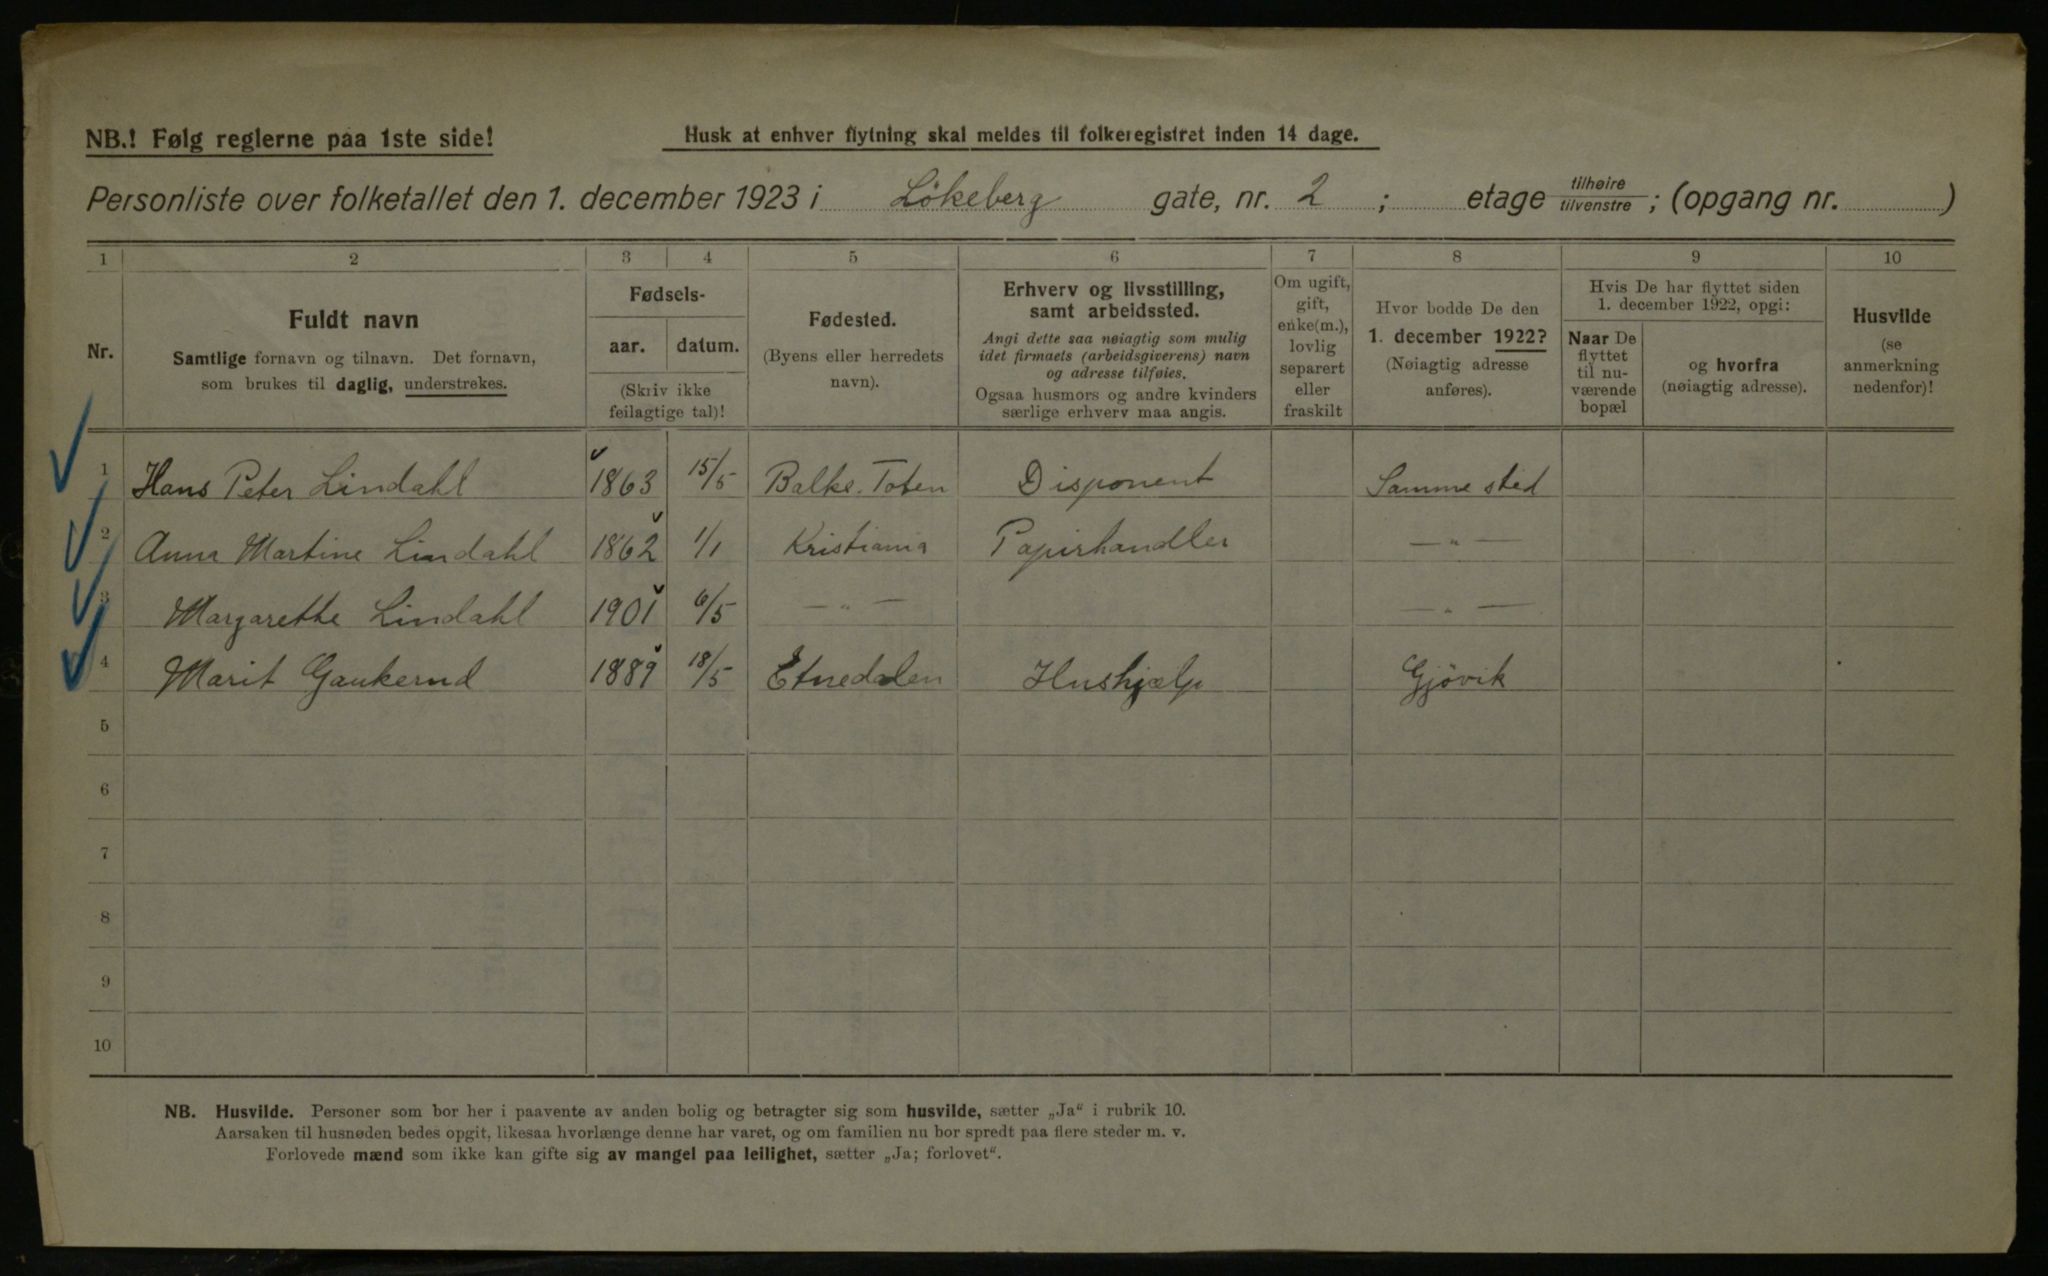 NB.! Følg reglerne paa 1ste side!
Husk at enhver flytning skal meldes til folkeregistret inden 14 dage.
Personliste over folketallet den 1. december 1923 i Lökeberg gate, nr. 2 ; etage tilhøire/tilvenstre ; (opgang nr. )
1 2 3 4 5 6 7 8 9 10
Nr.
Fuldt navn
Samtlige fornavn og tilnavn. Det fornavn,
som brukes til daglig, understrekes.
Fødsels-
aar. datum.
(Skriv ikke
feilagtige tal)!
Fødested.
(Byens eller herredets
navn).
Erhverv og livsstilling,
samt arbeidssted.
Angi dette saa nøiagtig som mulig
idet firmaets (arbeidsgiverens) navn
og adresse tilføies.
Ogsaa husmors og andre kvinders
særlige erhverv maa angis.
Om ugift,
gift,
enke(m.),
lovlig
separert
eller
fraskilt
Hvor bodde De den
1. december 1922?
(Nøiagtig adresse
anføres).
Hvis De har flyttet siden
1. december 1922, opgi:
Naar De
flyttet
til nu-
værende
bopæl
og hvorfra
(nøiagtig adresse).
Husvilde
(se
anmerkning
nedenfor)!
1 Hans Peter Lindahl 1863 15/5 Balke. Toten Disponent Samme sted
2 Anna Martine Lindahl 1862 1/1 Kristiania Papirhandler — „ —
3 Margarethe Lindahl 1901 6/5 — „ — — „ —
4 Marit Gaukerud 1889 18/5 Etnedalen Hushjælp Gjövik
5
6
7
8
9
10
NB. Husvilde. Personer som bor her i paavente av anden bolig og betragter sig som husvilde, sætter „Ja“ i rubrik 10.
Aarsaken til husnøden bedes opgit, likesaa hvorlænge denne har varet, og om familien nu bor spredt paa flere steder m. v.
Forlovede mænd som ikke kan gifte sig av mangel paa leilighet, sætter „Ja; forlovet“.